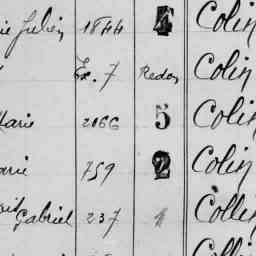 Julien 1844 4 Colin
Ex. 7 Redon Colin
Marie 2166 5 Colin
arie 759 2 Colin
Gabriel 237 Collin